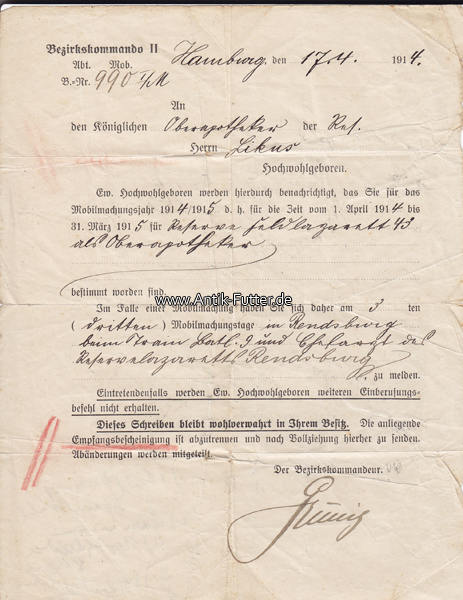 Bezirkskommando II Hamburg, den 17.4. 1914.
Abt. Mob.
B.-Nr. 990 I/M
An
den Königlichen Oberapotheker der Res.
Herrn Likus
Hochwohlgeboren.
Ew. Hochwohlgeboren werden hierdurch benachrichtigt, das Sie für das
Mobilmachungsjahr 1914/1915 d. h. für die Zeit vom 1. April 1914 bis
31. März 1915 für Reserve Feldlazarett 43
als Oberapotheker
bestimmt worden sind.
www.Antik-Futter.de
Im Falle einer Mobilmachung haben Sie sich daher am 3 ten
(dritten) Mobilmachungstage in Rendsburg
beim Train Batl. 9 und Chefarzt des
Reservelazaretts Rendsburg
zu melden.
Eintretendenfalls werden Ew. Hochwohlgeboren weiteren Einberufungs-
befehl nicht erhalten.
Dieses Schreiben bleibt wohlverwahrt in Ihrem Besitz. Die anliegende
Empfangsbescheinigung ist abzutrennen und nach Vollziehung hierher zu senden.
Abänderungen werden mitgeteilt.
Der Bezirkskommandeur.